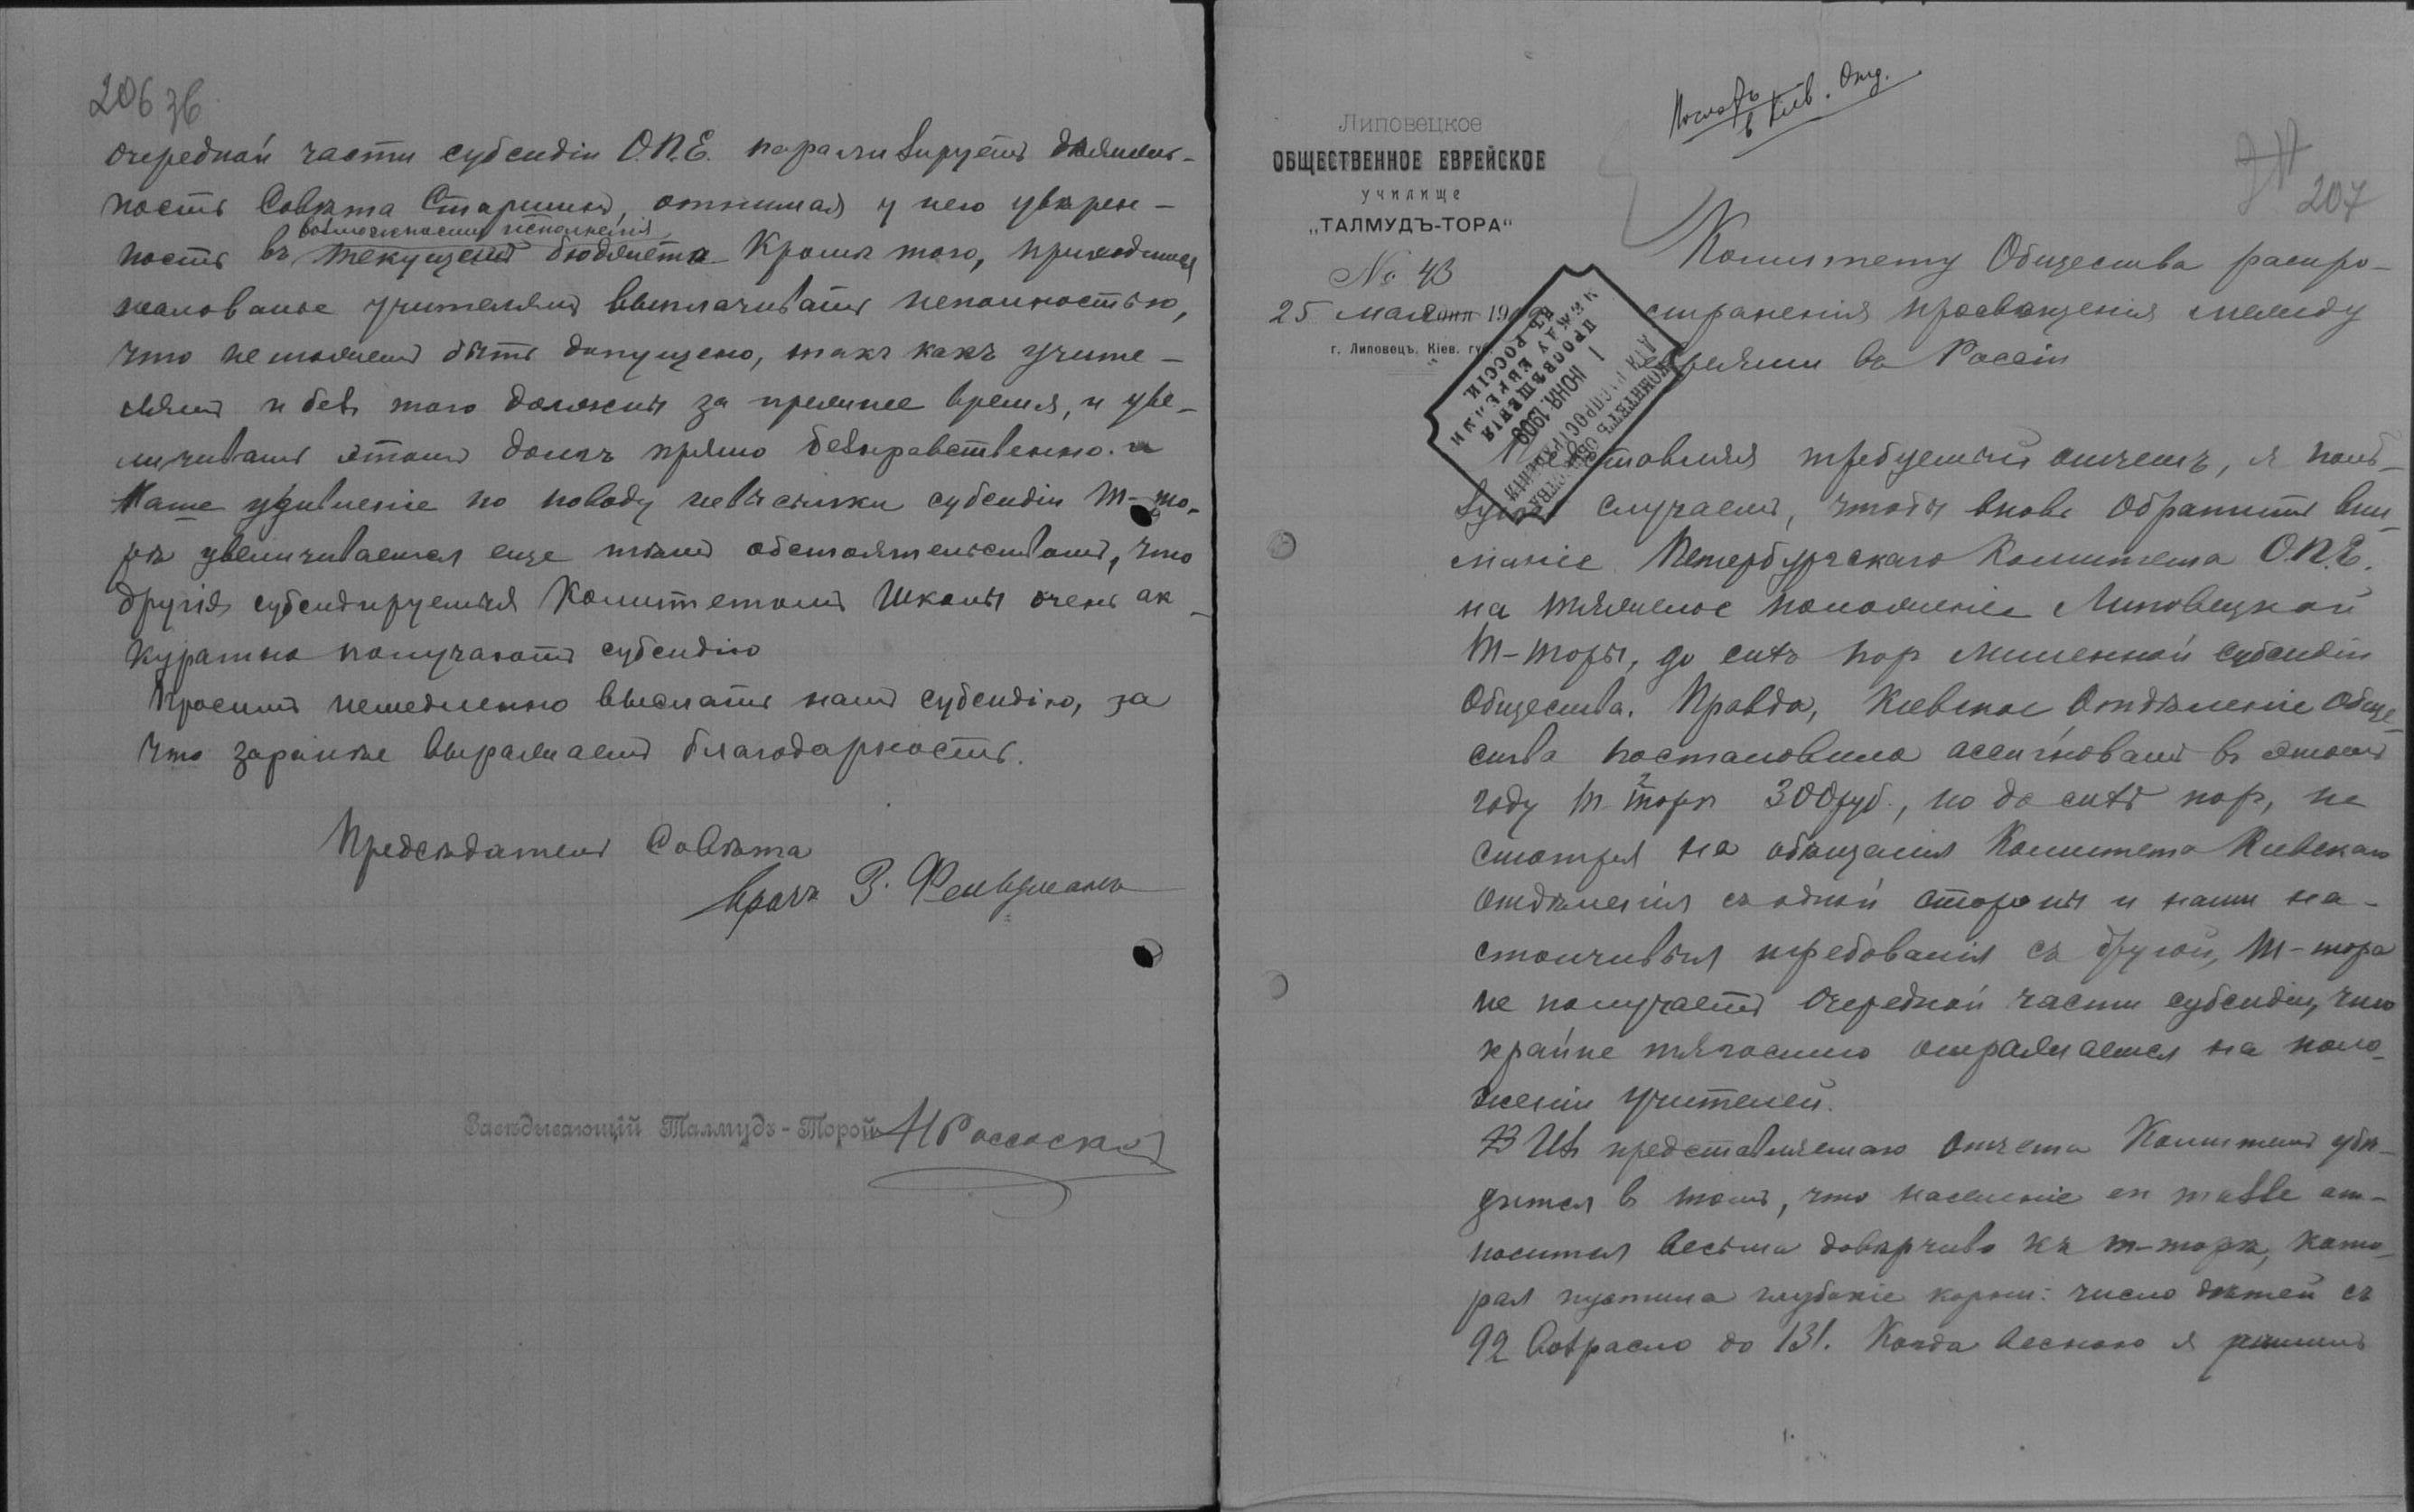 206 зв
очередной части субсидіи О.П.Е. парализируетъ дѣятель-
ность Совѣта Старшинъ, отнимая у него увѣрен-
возможность исполненія
ность въ текущемъ бюджета Кромѣ того, приходится
жалованье учителямъ выплачивать неполностью,
что не можетъ быть допущено, такъ какъ учите-
лямъ и безъ того должны за прежнее время, и уве-
личивать этотъ долгъ прямо безнравственно. и
Наше удивленіе по поводу невысылки субсидіи Т-то-
рѣ увеличивается еще тѣмъ обстоятельствомъ, что
другія субсидируемыя Комитетомъ Школы очень ак-
куратно получаютъ субсидію
Просимъ немедленно выслать намъ субсидію, за
что заранѣе выражаемъ благодарность.
Предсѣдатель Совѣта
врачъ З. Фельдманъ
Завѣдывающій Талмудъ-Торой
Послать
в Кіев. Отд.
207
Липовецкое
ОБЩЕСТВЕННОЕ ЕВРЕЙСКОЕ
училище
„ТАЛМУДЪ-ТОРА“
№ 43
25 мая 1909
г. Липовецъ, Кіев. губ.
КОМИТЕТЪ ОБЩЕСТВА
ДЛЯ РАСПРОСТРАНЕНІЯ
1 ІЮНЯ 1909
ПРОСВѢЩЕНІЯ
МЕЖДУ ЕВРЕЯМИ
ВЪ РОССІИ
Комитету Общества распро-
страненія просвѣщенія между
евреями въ Россіи
требуемый отчетъ, я поль-
зуюсь случаемъ, чтобы вновь обратить вни-
маніе Петербургскаго Комитета О.П.Е.
на тяжелое положеніе Липовецкой
Т-торы, до сихъ пор лишенной субсидіи
Общества. Правда, Кіевское Отдѣленіе Обще-
ства постановило ассигновать в этомъ
году Т-торѣ 300 руб., но до сихъ пор, не
смотря на обѣщанія Комитета Кіевскаго
отдѣленія съ одной стороны и наши на-
стойчивыя требованія съ другой, Т-тора
не получаетъ очередной части субсидіи, что
крайне тягостно отражается на поло-
женіи учителей.
Изъ представляемаго отчета Комитетъ убѣ-
дится в томъ, что населеніе en masse от-
носится весьма довѣрчиво къ т-торѣ, кото-
рая пустила глубокіе корни: число дѣтей съ
92 возрасло до 131. Когда весною я рѣшилъ